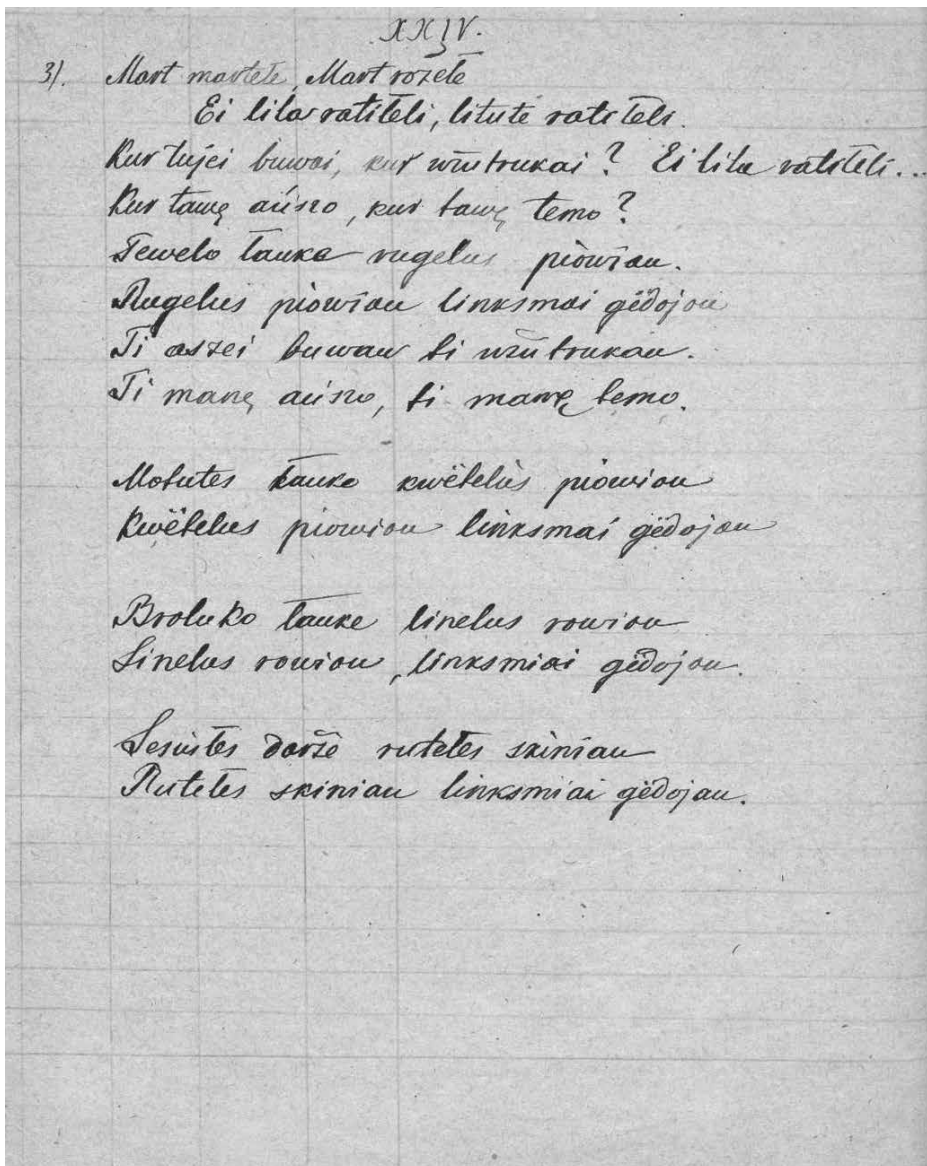 XXIV.
31. Mart martele, Mart rozele
Ei lila ratiteli, litute ratiteli.
Kur tujei buwai, kur užutrukai? Ei lila ratiteli...
Kur tawę aúszo, kur tawę temo?
Tewelo lauke rugelus piowiau.
Rugelus piowiau linksmai gëdojau
Ti aszei buwau ti užutrukau.
Ti manę aúszo, ti manę temo.
Motutes lauke kwëtelus piowiau
Kwëtelus piowiau linksmai gëdojau
Broluko lauke linelus rowiau
Linelus rowiau, linksmiai gëdojau.
Sesutes darže ruteles skiniau
Ruteles skiniau linksmiai gëdojau.